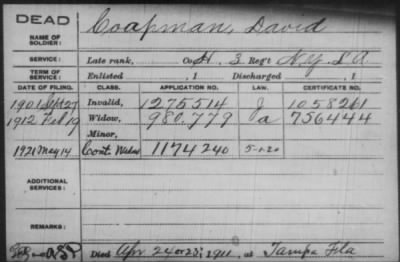 DEAD
NAME OF SOLDIER: Coapman, David
SERVICE: Late rank, Co. H. 3 Reg't N.Y. L A.
TERM OF SERVICE: Enlisted , 1 Discharged , 1
DATE OF FILING. CLASS. APPLICATION NO. LAW. CERTIFICATE NO.
1901 Sept 27 Invalid, 1275514 J 1058261
1912 Feb 19 Widow, 980.779 a 756444
Minor,
1921 May 14 Cont. Widow 1174240 5-1-20
ADDITIONAL SERVICES:
REMARKS:
Died Apr 24 or 25, 1911, at Tampa Fla